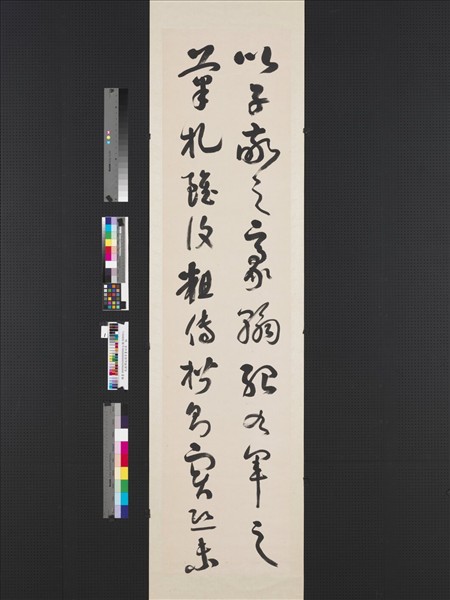 以子敬之豪翰紹右軍之
筆札雖復粗傳楷則實恐未